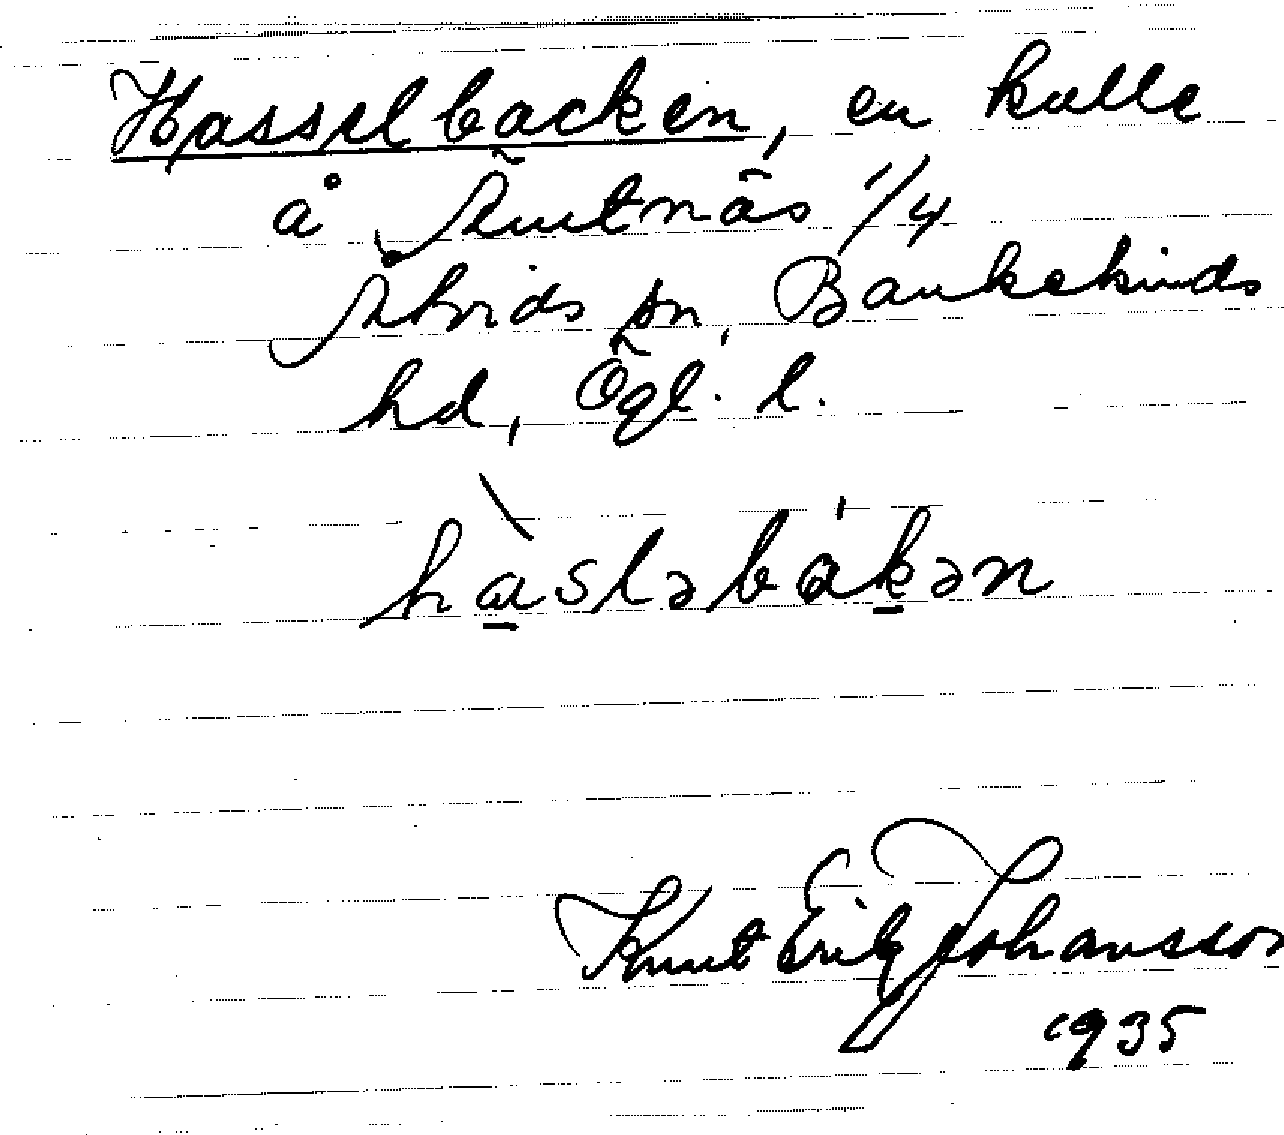 Hasselbacken, en kulle
å Ämtnäs 1/4
Åtvids sn, Bankekinds
hd, Ögl. l.
hàsləbákən
Knut Erik Johansson
1935